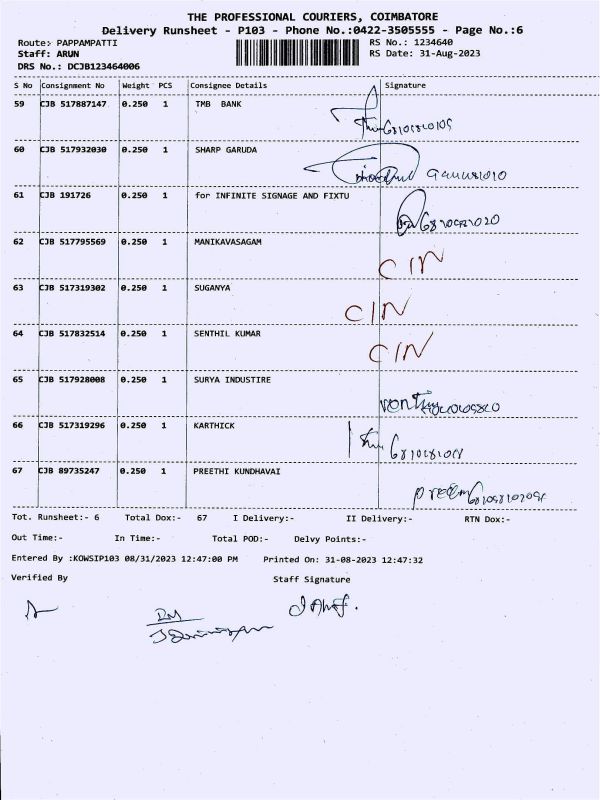 THE PROFESSIONAL COURIERS, COIMBATORE
Delivery Runsheet - P103 - Phone No.:0422-3505555 - Page No.:6
Route:- PAPPAMPATTI RS No.: 1234640
Staff: ARUN RS Date: 31-Aug-2023
DRS No.: DCJB123464006
S No Consignment No Weight PCS Consignee Details Signature
59 CJB 517887147 0.250 1 TMB BANK
60 CJB 517932030 0.250 1 SHARP GARUDA
61 CJB 191726 0.250 1 for INFINITE SIGNAGE AND FIXTU
62 CJB 517795569 0.250 1 MANIKAVASAGAM CIN
63 CJB 517319302 0.250 1 SUGANYA CIN
64 CJB 517832514 0.250 1 SENTHIL KUMAR CIN
65 CJB 517928008 0.250 1 SURYA INDUSTIRE
66 CJB 517319296 0.250 1 KARTHICK
67 CJB 89735247 0.250 1 PREETHI KUNDHAVAI
Tot. Runsheet:- 6 Total Dox:- 67 I Delivery:- II Delivery:- RTN Dox:-
Out Time:- In Time:- Total POD:- Delvy Points:-
Entered By :KOWSIP103 08/31/2023 12:47:00 PM Printed On: 31-08-2023 12:47:32
Verified By Staff Signature